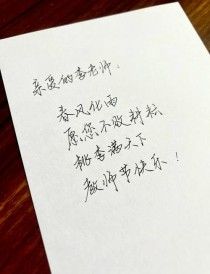 亲爱的李老师：
春风化雨
愿您不败耕耘
桃李满天下
教师节快乐！